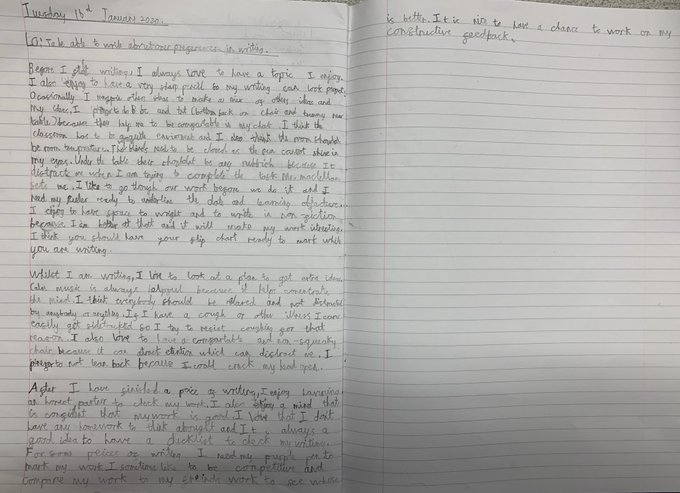 Tuesday 15th January 2020.
Lo: To be able to write about our pregerences in writing.
Before I start writing, I always love to have a topic I enjoy.
I also enjoy to have a very sharp pencil so my writing can look proper.
Ocasionally I other ideas to make a mix of others ideas and
my idea. I to B.B.C and tnt (bottom back on chair and tummy near
table) because they help me to be comfortable in my chair. I think the
classroom has to be a quiette enviroment and I also think the room should
be room temprature. The blinds need to be closed so the sun cannot shine in
my eyes. Under the table their be any rubbish because It
distracts me when I am trying to complete the task Mr. maclellan
sets me. I like to go though our work before we do it and I
need my ruler ready to underline the date and learning objective.
I enjoy to have space to wright and to write in non-giction
because I am better at that and it will make my work intresting.
I think you should have your flip chart ready to mark while
you are writing.
Whilst I am writing, I love to look at a plan to get extra ideas.
Calm music is always because it helps consentrate
the mind. I think everybody should be relaxed and not distracted
by anybody or anything. If I have a cough or other illness I can
easily get sidetracked so I try to resist coughing for that
reason. I also love to have a comfortable and non-squeaky
chair because it can atract etention which can distract me. I
to not lean back because I could crack my head open.
After I have finished a peice of writing, I enjoy
an honest partner to check my work. I also enjoy a mind that
is congident that my work is good. I love that I don't
have any homework to think about and It is always a
good idea to have a checklist to check my writing.
For some peices of writing I need my purple pen to
mark my work. I sometimes like to be competitive and
compare my work to my work to see whose
is better. It is nice to have a chance to work on my
constructive feedback.